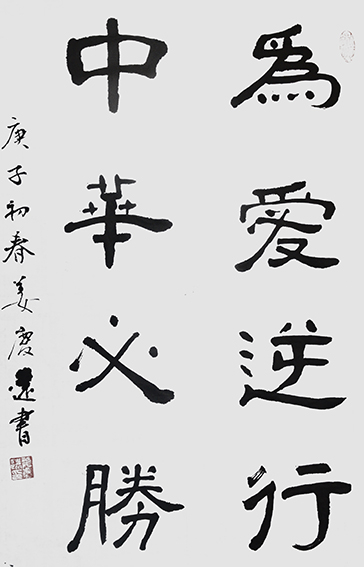 為愛逆行
中華必勝
庚子初春姜慶書